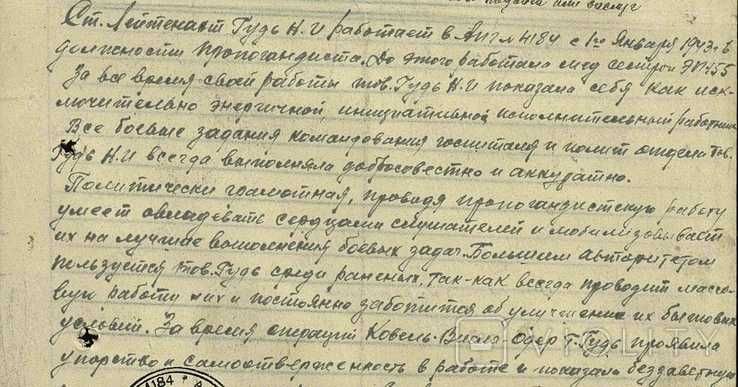 подвига или заслуг
Ст. Лейтенант Гудь Н.И работает в Апгл 4184 с 1го Января 1943г. в
должности пропогандиста. До этого работала мед сестрой ЭП 1455
За все время своей работы тов. Гудь Н.И показала себя как иск-
лючительно энергичной, инициативной исполнительный работник
Все боевые задания командования госпиталя и полит отдела тов.
Гудь Н.И всегда выполняла добросовестно и аккуратно.
Политически грамотная, проводя пропогандистскую работу
умеет овладевать сердцами слушателей и мобилизовывает
их на лучшее выполнения боевых задач. Большим авторитетом
пользуется тов. Гудь среди раненых, так-как всегда проводит массо-
вую работу с них и постоянно заботится об улучшение их бытовых
условий. За время операций Ковель-Висла-Одер т. Гудь проявила
упорство и самоотверженность в работе и показала беззаветную
4184
VIOLITY